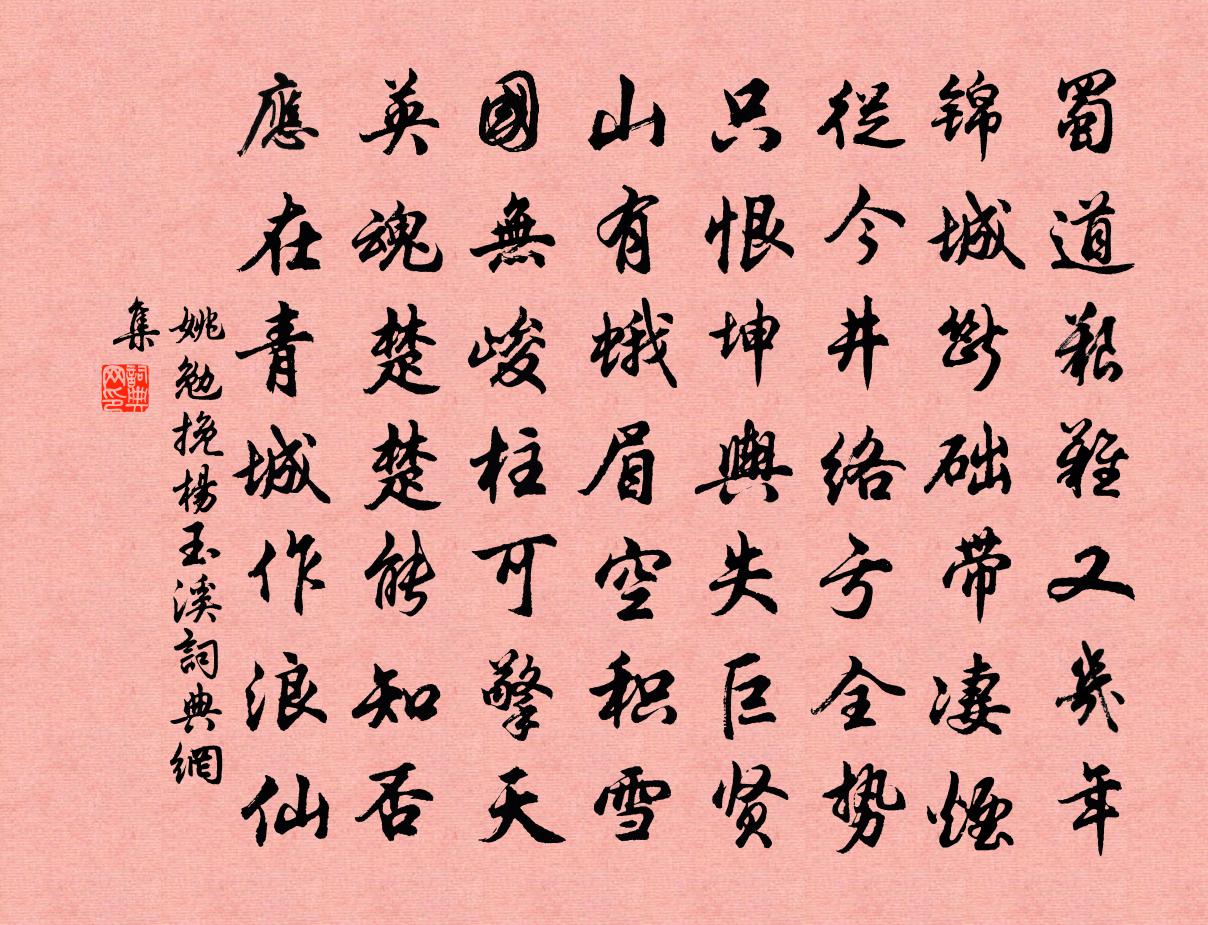 蜀道艱難又幾年
锦城斷础带凄煙
從今井络亏全势
只恨坤輿失巨贤
山有蛾眉空积雪
國無峻柱可擎天
英魂楚楚能知否
應在青城作浪仙
姚勉挽楊玉溪詞典網
集
詞典
网印